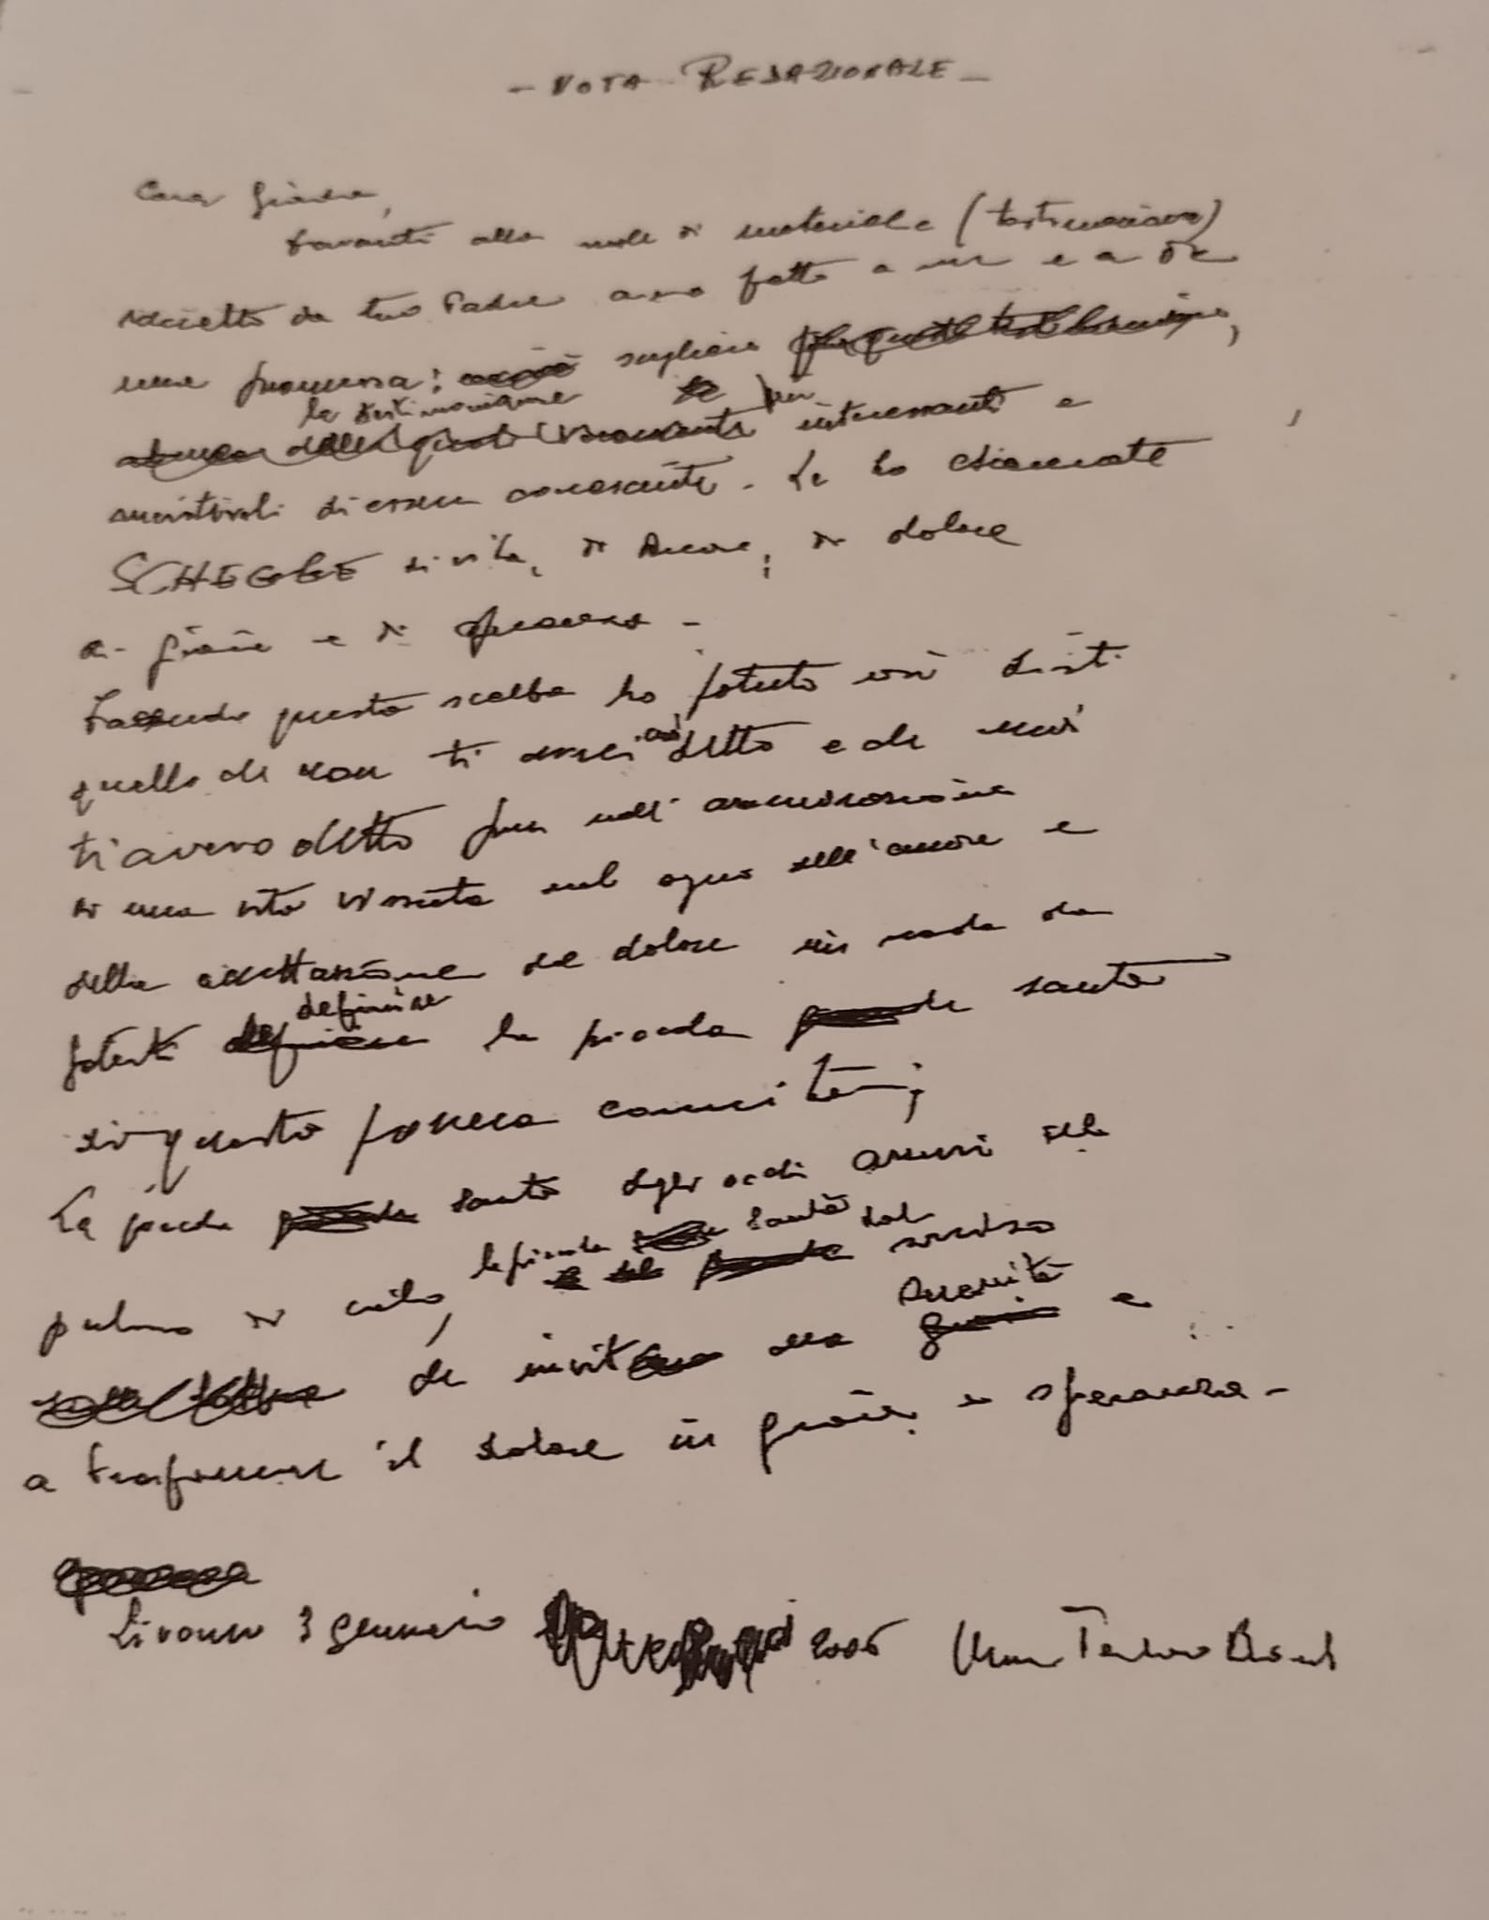 - NOTA REDAZIONALE -
Cara Giada,
davanti alla mole di materiale (testimonianze)
raccolto da tuo Padre ho fatto a me e a te
una promessa: scegliere
le testimonianze più
interessanti e
meritevoli di essere conosciute. Le ho chiamate
SCHEGGE di vita, di Amore, di dolore
di gioia e di speranza -
Facendo questa scelta ho potuto così dirti
quello che non ti avrei così detto e che mai
ti avevo detto pur nell'ammirazione
di una vita vissuta nel segno dell'amore e
della accettazione del dolore in modo da
poterti definire la piccola santa
di questo povera comunità;
La piccola santa dagli occhi azzurri del
la piccola santa dal
colore di cielo, sorriso
serenità
che invita alla e
a trasformare il dolore in gioia e speranza -
Livorno 3 Gennaio 2006